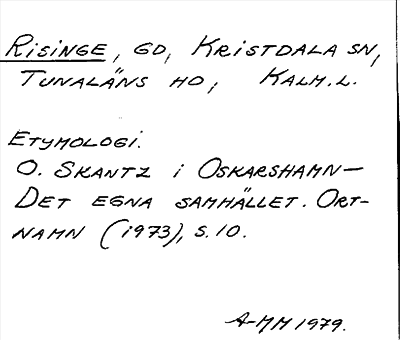 RISINGE, GD, KRISTDALA SN,
TUNALÄNS HD, KALM.L.
ETYMOLOGI.
O. SKANTZ i OSKARSHAMN–
DET EGNA SAMHÄLLET. ORT-
NAMN (1973), S. 10.
A-MM 1979.